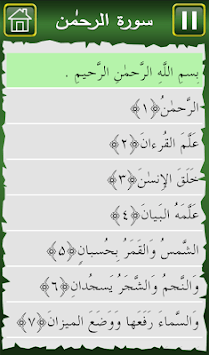 سورة الرحمٰن
بِسمِ اللَّهِ الرَّحمٰنِ الرَّحيمِ .
الرَّحمٰنُ ﴿١﴾
عَلَّمَ القُرءانَ ﴿٢﴾
خَلَقَ الإِنسٰنَ ﴿٣﴾
عَلَّمَهُ البَيانَ ﴿٤﴾
الشَّمسُ وَالقَمَرُ بِحُسبانٍ ﴿٥﴾
وَالنَّجمُ وَالشَّجَرُ يَسجُدانِ ﴿٦﴾
وَالسَّماءَ رَفَعَها وَوَضَعَ الميزانَ ﴿٧﴾